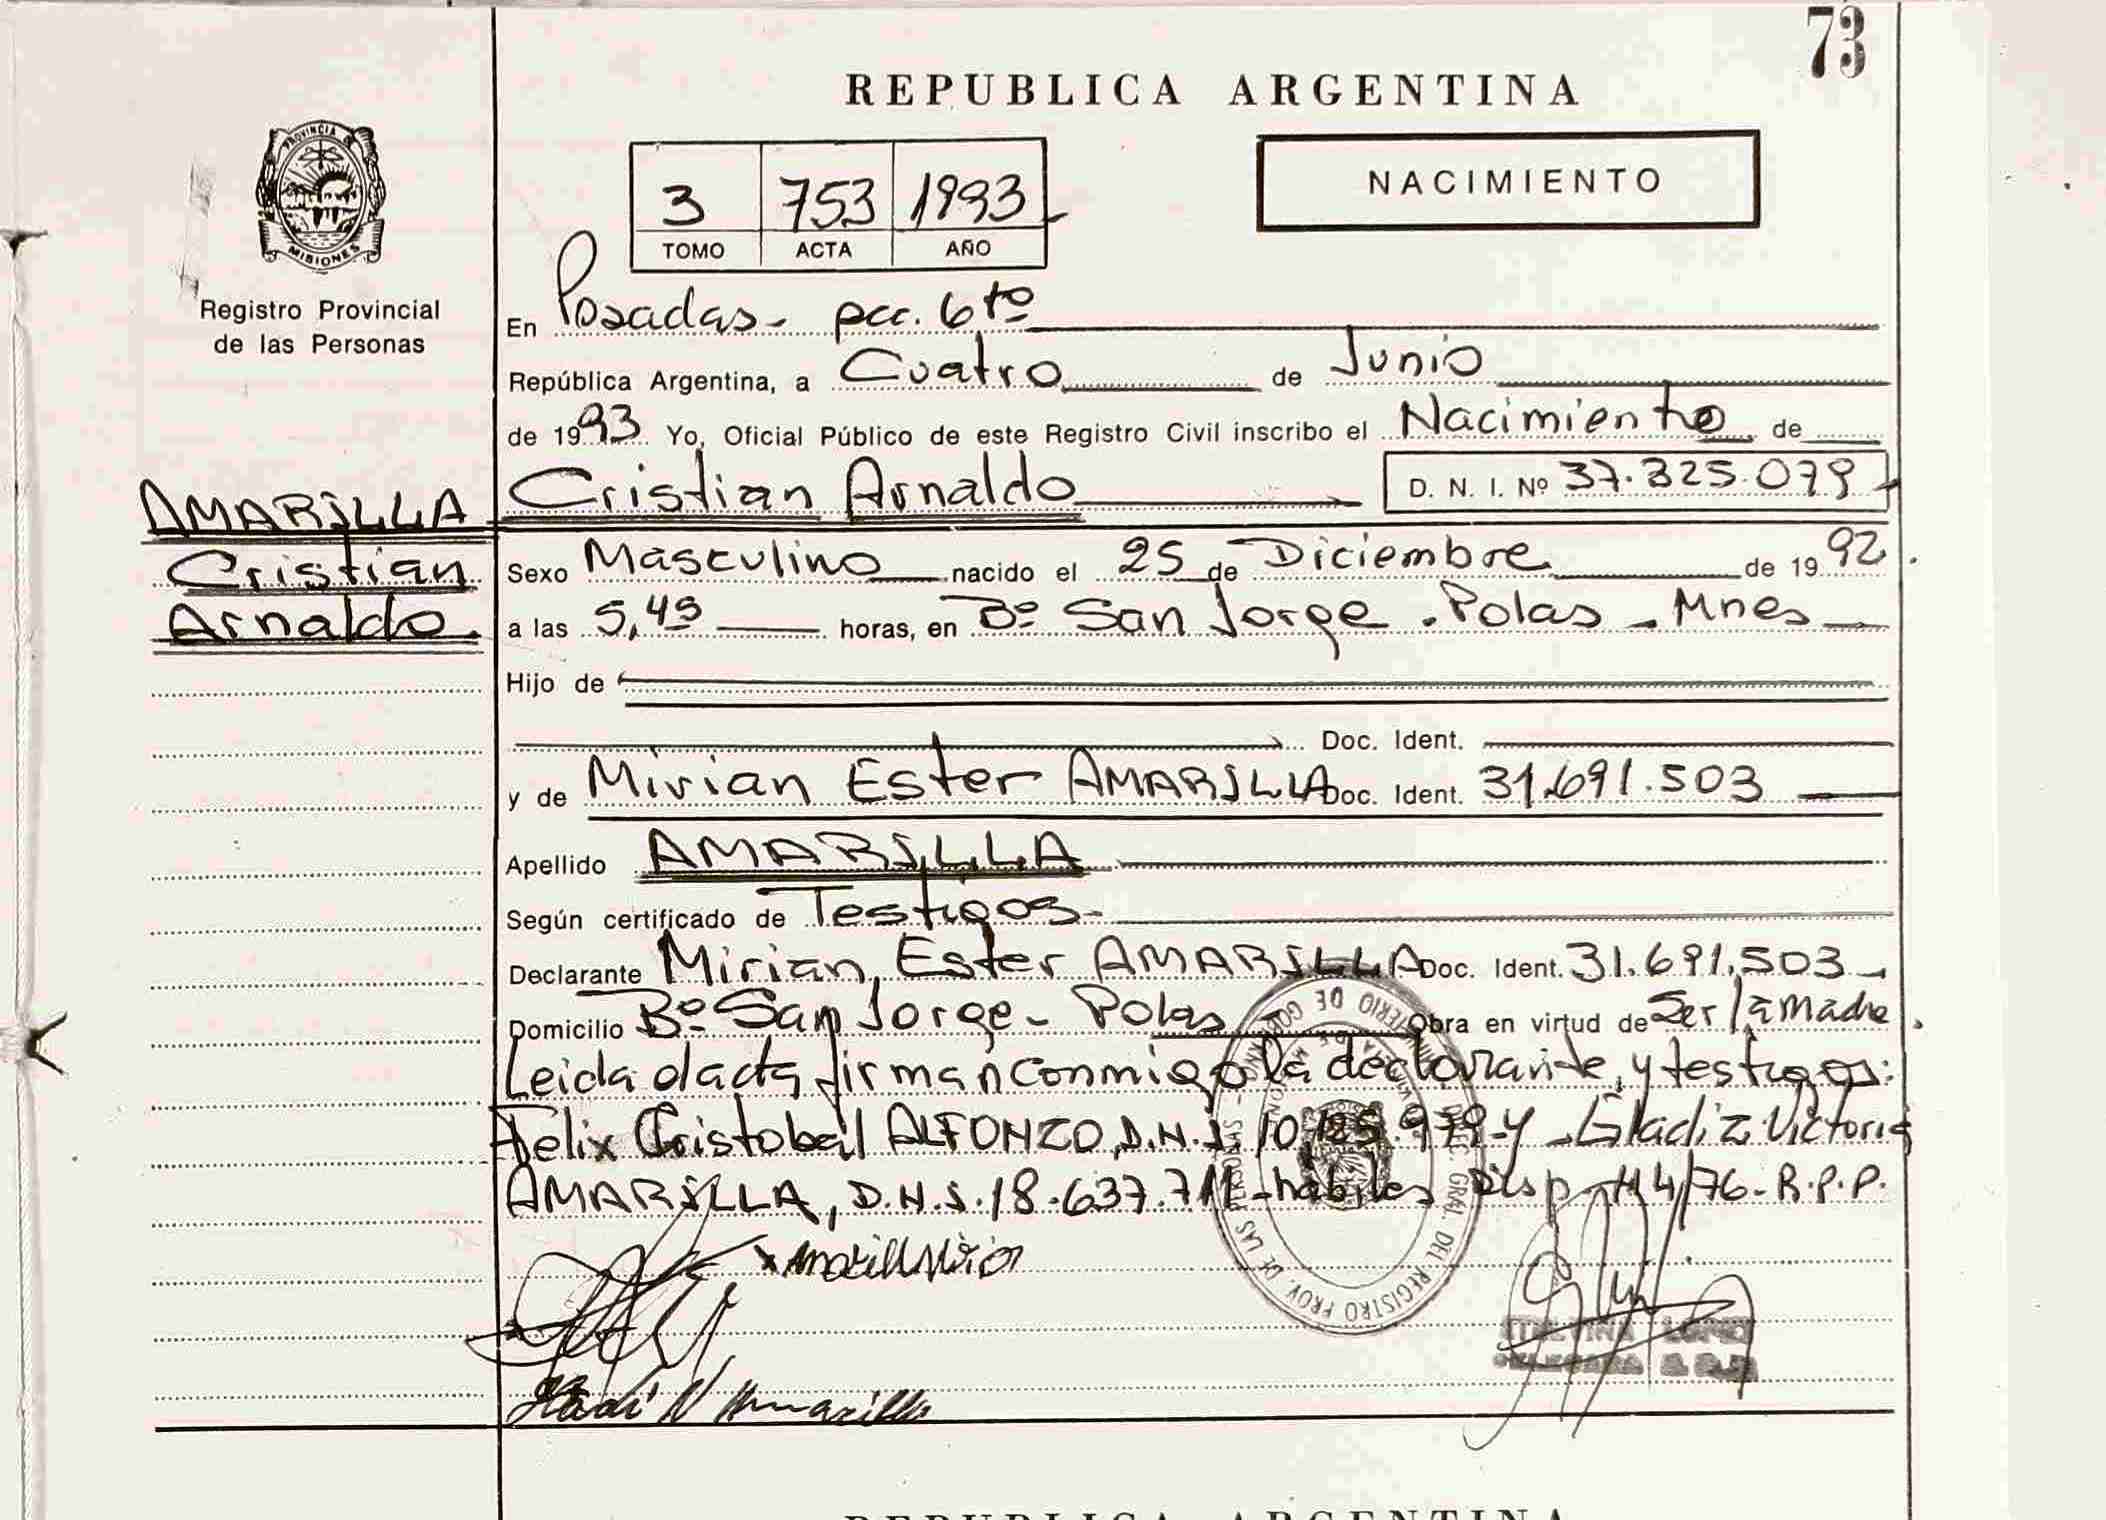 73
REPUBLICA ARGENTINA
PROVINCIA DE
MISIONES
Registro Provincial
de las Personas
3 753 1993
TOMO ACTA AÑO
NACIMIENTO
En Posadas - pcc. 6to
República Argentina, a Cuatro de Junio
de 1993 Yo, Oficial Público de este Registro Civil inscribo el Nacimiento de
AMARILLA
Cristian
Arnaldo
Cristian Arnaldo D. N. I. Nº 37.325.079
Sexo Masculino nacido el 25 de Diciembre de 1992
a las 5,45 horas, en Bº San Jorge - Pdas - Mnes
Hijo de
Doc. Ident.
y de Mirian Ester AMARILLA Doc. Ident. 31.691.503
Apellido AMARILLA
Según certificado de Testigos-
Declarante Mirian Ester AMARILLA Doc. Ident. 31.691.503
Domicilio Bº San Jorge - Pdas Obra en virtud de Ser la madre
Leida el acta firman conmigo la declarante, y testigos:
Felix Cristobal ALFONZO, D.N.I. 10.125.979 y Gladiz Victoria
AMARILLA, D.N.I. 18.637.711 - hábiles Disp. 114/76 - R.P.P.
DIREC. GRAL. DEL REGISTRO PROV. DE LAS PERSONAS - MINISTERIO DE GOBIERNO
REPUBLICA ARGENTINA